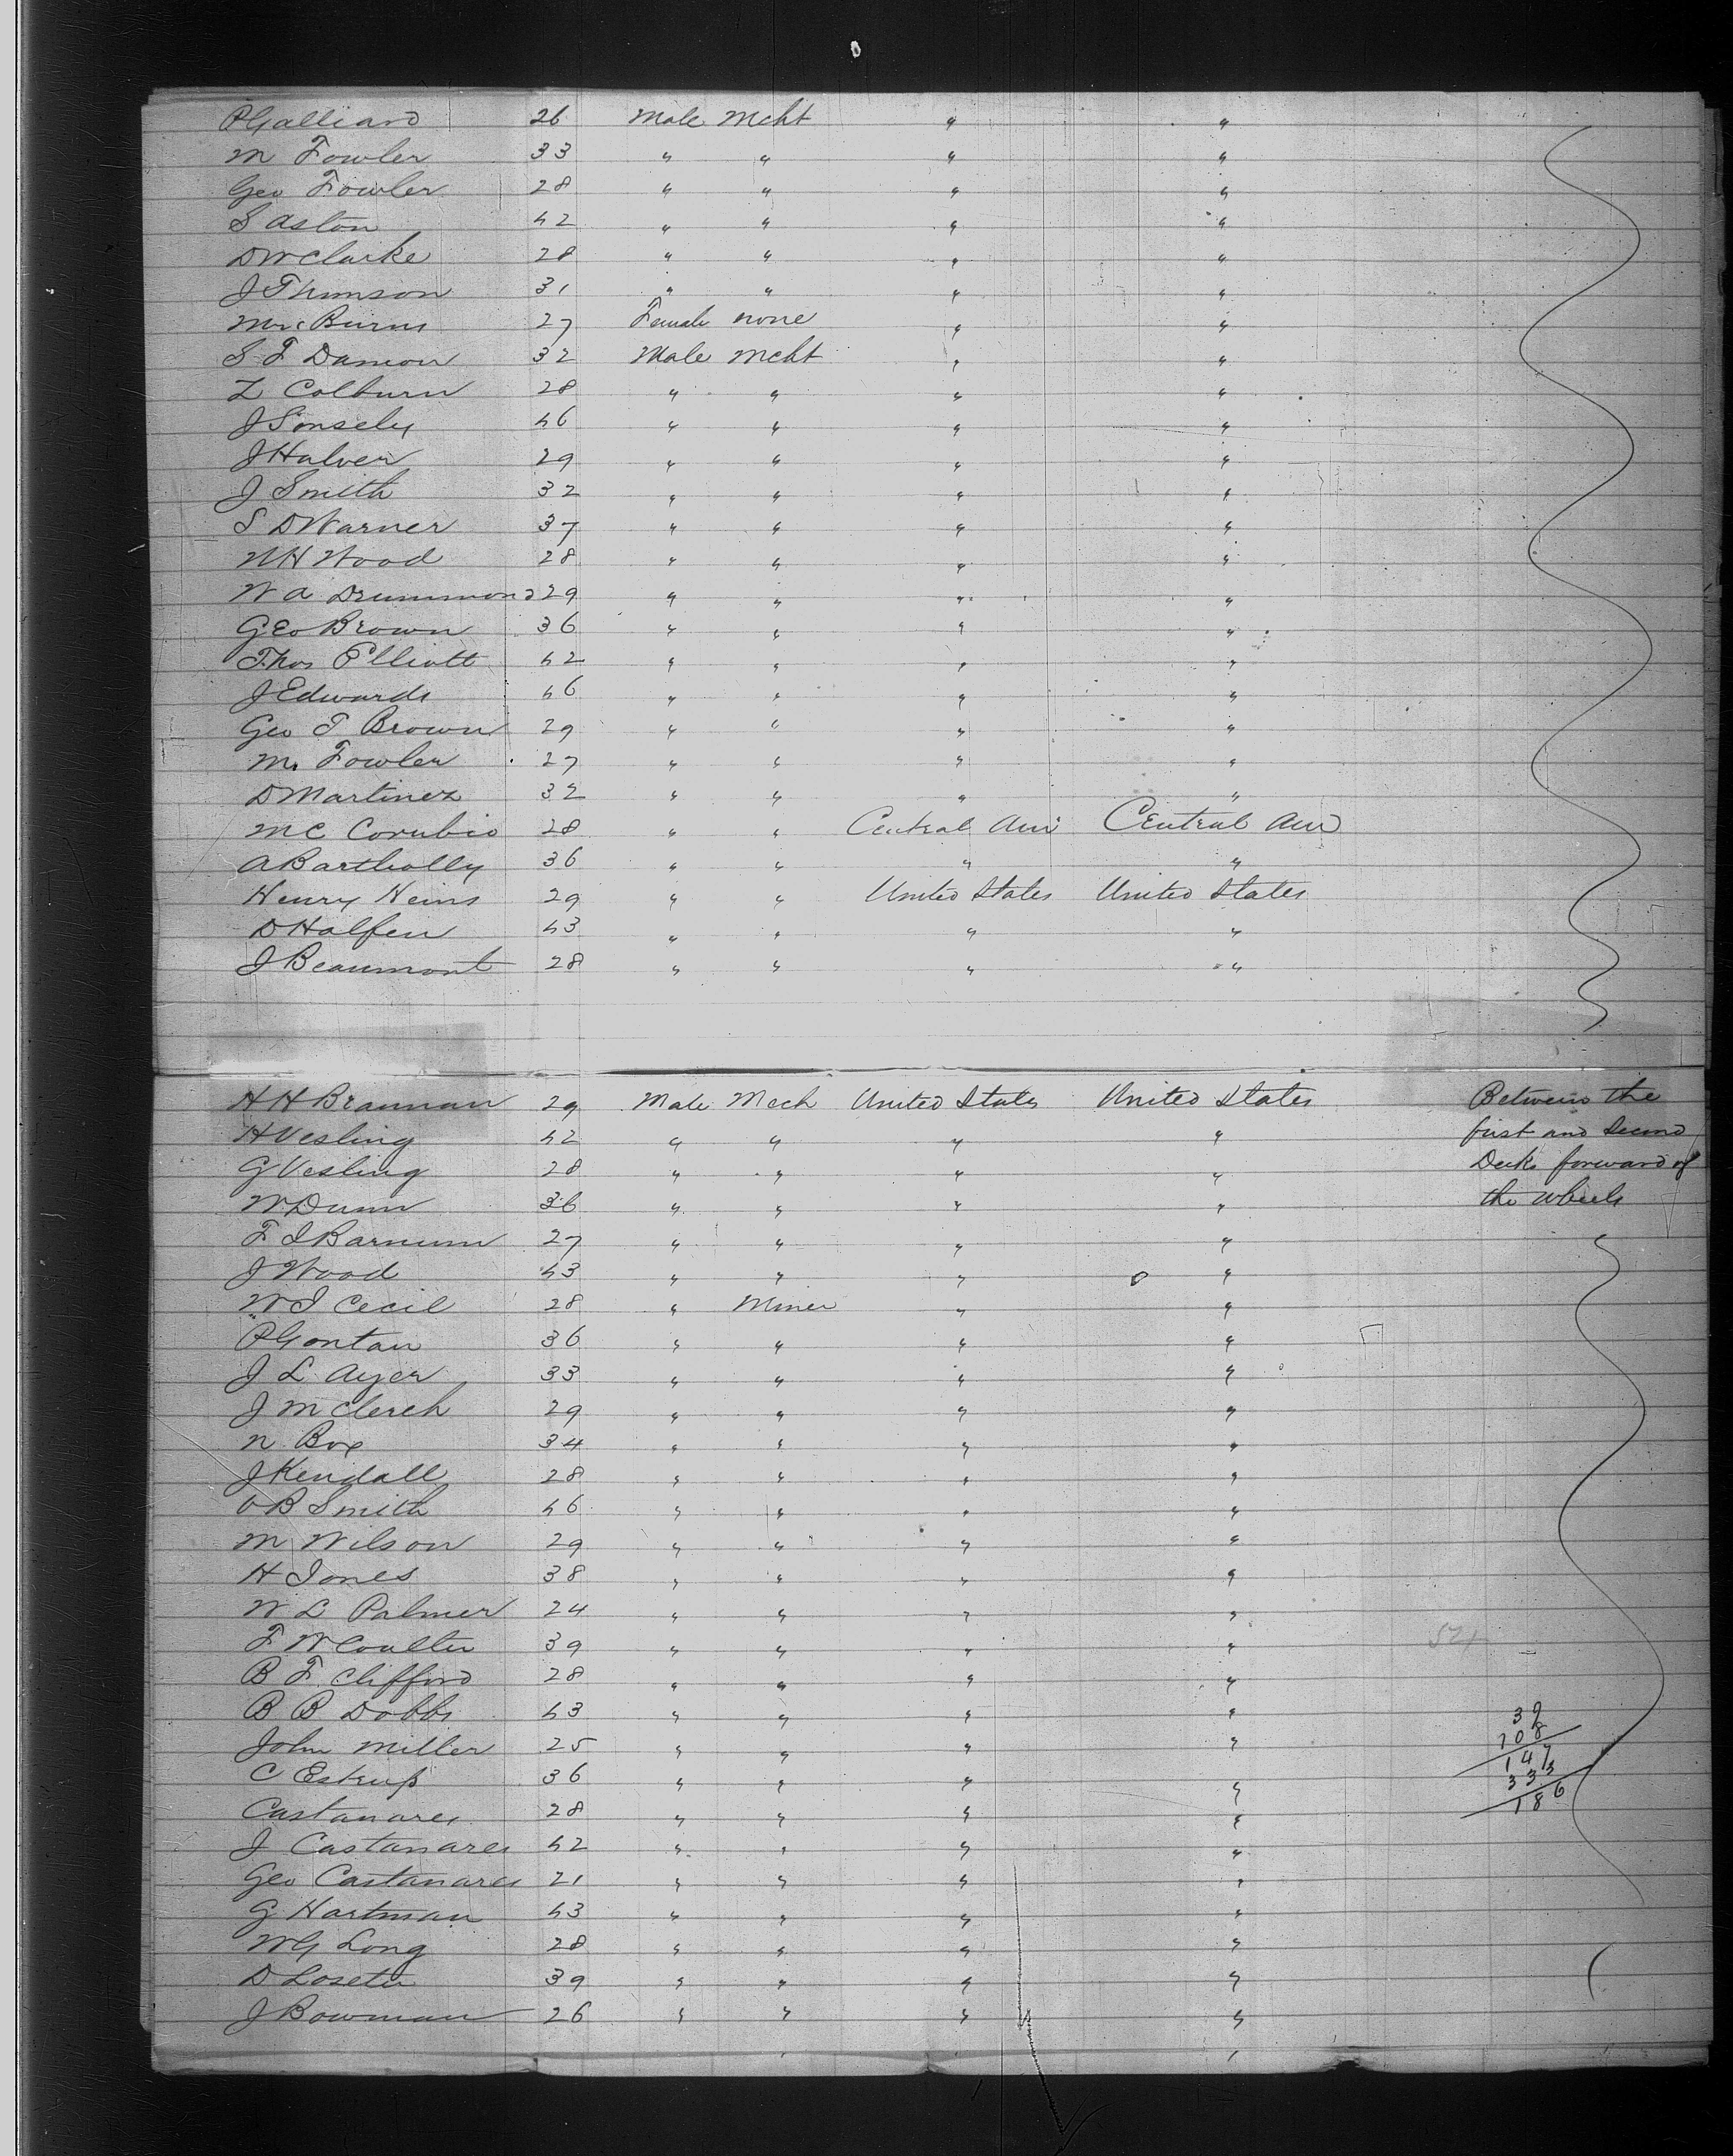 P Galliard 26 Male Mcht " "
M Fowler 33 " " " "
Geo Fowler 28 " " " "
S Aston 42 " " " "
D W Clarke 28 " " " "
J Thomson 31 " " " "
Mrs Burns 27 Female none " "
S F Damon 32 Male Mcht " "
Z Colburn 28 " " " "
J Sonsely 46 " " " "
J Halver 29 " " " "
J Smith 32 " " " "
S D Warner 37 " " " "
N H Wood 28 " " " "
W A Drummond 29 " " " "
Geo Brown 36 " " " "
Thos Elliott 42 " " " "
J Edwards 46 " " " "
Geo T Brown 29 " " " "
M. Fowler 27 " " " "
D Martinez 32 " " " "
M C Corubio 28 " " Central Am Central Am
A Bartholly 36 " " " "
Henry Heins 29 " " United States United States
D Halfen 43 " " " "
J Beaumont 28 " " " "
H H Brannan 29 Male Mech United States United States Between the
H Vesling 42 " " " " first and Second
G Vesling 28 " " " " Decks forward of
W Dunn 36 " " " " the wheels
F I Barnum 27 " " " "
J Wood 43 " " " "
W I Cecil 28 " Miner " "
P Gontan 36 " " " "
J L Ayer 33 " " " "
J M Clerch 29 " " " "
N Box 34 " " " "
J Kendall 28 " " " "
O B Smith 46 " " " "
M Wilson 29 " " " "
H Jones 38 " " " "
W L Palmer 24 " " " "
F W Coulter 39 " " " "
B F Clifford 28 " " " "
B B Dobbs 43 " " " " 39
John Miller 25 " " " " 108
C Estrup 36 " " " " 147
Castanares 28 " " " " 186
J Castanares 42 " " " "
Geo Castanares 21 " " " "
G Hartman 43 " " " "
W G Long 28 " " " "
D Loseter 39 " " " "
J Bowman 26 " " " "